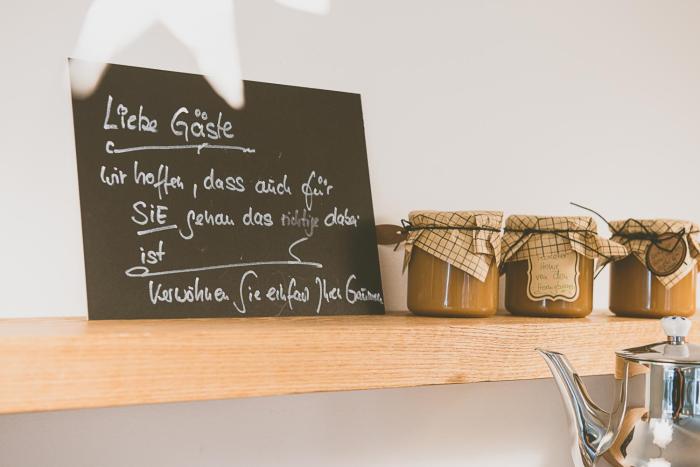 Liebe Gäste
wir hoffen, dass auch für
SIE genau das richtige dabei
ist
Verwöhnen Sie einfach Ihren Gaumen